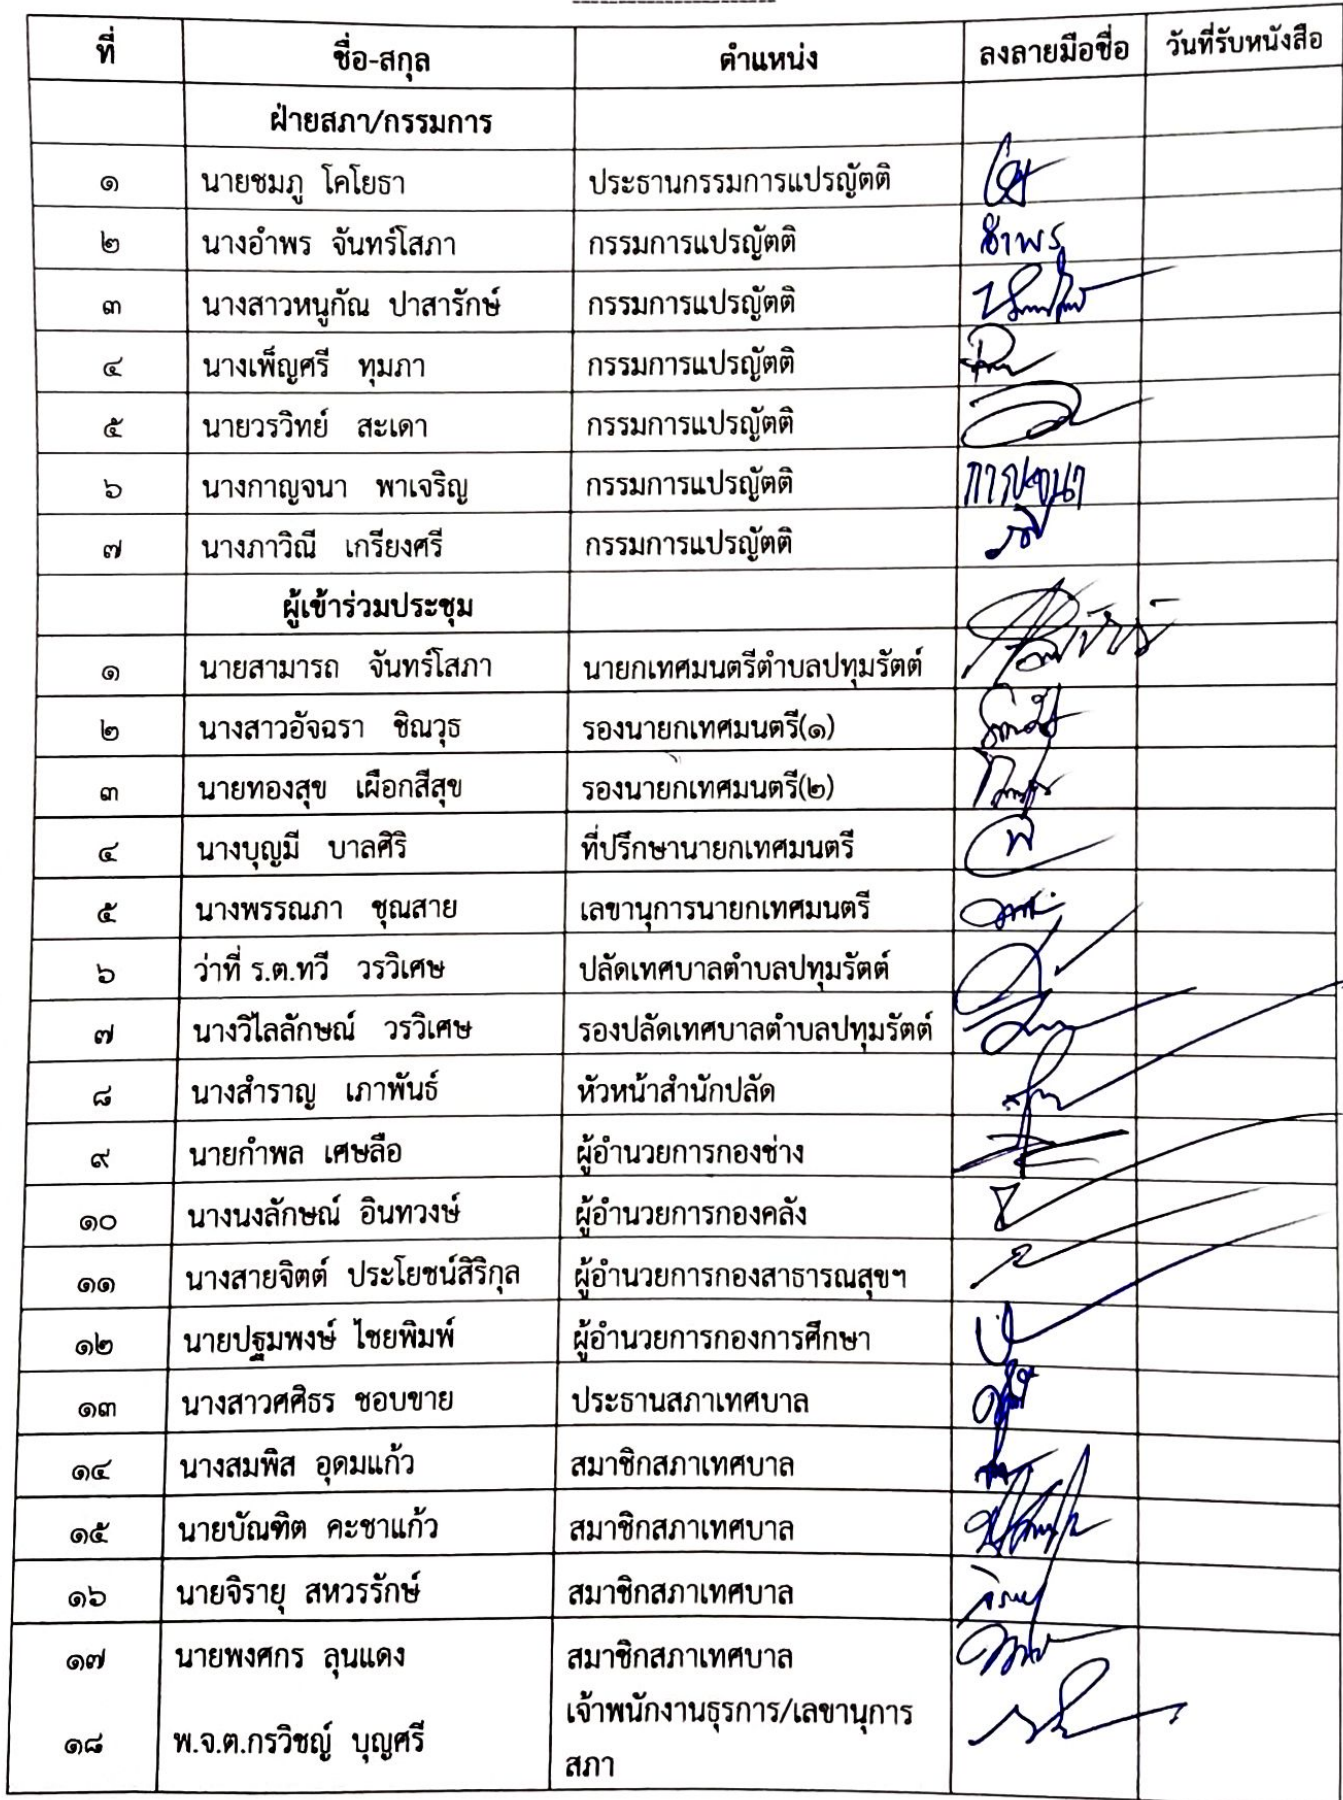 ที่ ชื่อ-สกุล ตำแหน่ง ลงลายมือชื่อ วันที่รับหนังสือ
ฝ่ายสภา/กรรมการ
๑ นายชมภู โคโยธา ประธานกรรมการแปรญัตติ
๒ นางอำพร จันทร์โสภา กรรมการแปรญัตติ อำพร
๓ นางสาวหนูกัณ ปาสารักษ์ กรรมการแปรญัตติ
๔ นางเพ็ญศรี ทุมภา กรรมการแปรญัตติ
๕ นายวรวิทย์ สะเดา กรรมการแปรญัตติ
๖ นางกาญจนา พาเจริญ กรรมการแปรญัตติ กาญจนา
๗ นางภาวิณี เกรียงศรี กรรมการแปรญัตติ
ผู้เข้าร่วมประชุม
๑ นายสามารถ จันทร์โสภา นายกเทศมนตรีตำบลปทุมรัตต์
๒ นางสาวอัจฉรา ชิณวุธ รองนายกเทศมนตรี(๑)
๓ นายทองสุข เผือกสีสุข รองนายกเทศมนตรี(๒)
๔ นางบุญมี บาลศิริ ที่ปรึกษานายกเทศมนตรี
๕ นางพรรณภา ชุณสาย เลขานุการนายกเทศมนตรี
๖ ว่าที่ ร.ต.ทวี วรวิเศษ ปลัดเทศบาลตำบลปทุมรัตต์
๗ นางวิไลลักษณ์ วรวิเศษ รองปลัดเทศบาลตำบลปทุมรัตต์
๘ นางสำราญ เภาพันธ์ หัวหน้าสำนักปลัด
๙ นายกำพล เศษลือ ผู้อำนวยการกองช่าง
๑๐ นางนงลักษณ์ อินทวงษ์ ผู้อำนวยการกองคลัง
๑๑ นางสายจิตต์ ประโยชน์สิริกุล ผู้อำนวยการกองสาธารณสุขฯ
๑๒ นายปฐมพงษ์ ไชยพิมพ์ ผู้อำนวยการกองการศึกษา
๑๓ นางสาวศศิธร ชอบขาย ประธานสภาเทศบาล
๑๔ นางสมพิส อุดมแก้ว สมาชิกสภาเทศบาล
๑๕ นายบัณฑิต คะชาแก้ว สมาชิกสภาเทศบาล
๑๖ นายจิรายุ สหวรรักษ์ สมาชิกสภาเทศบาล
๑๗ นายพงศกร ลุนแดง สมาชิกสภาเทศบาล
๑๘ พ.จ.ต.กรวิชญ์ บุญศรี เจ้าพนักงานธุรการ/เลขานุการ
สภา